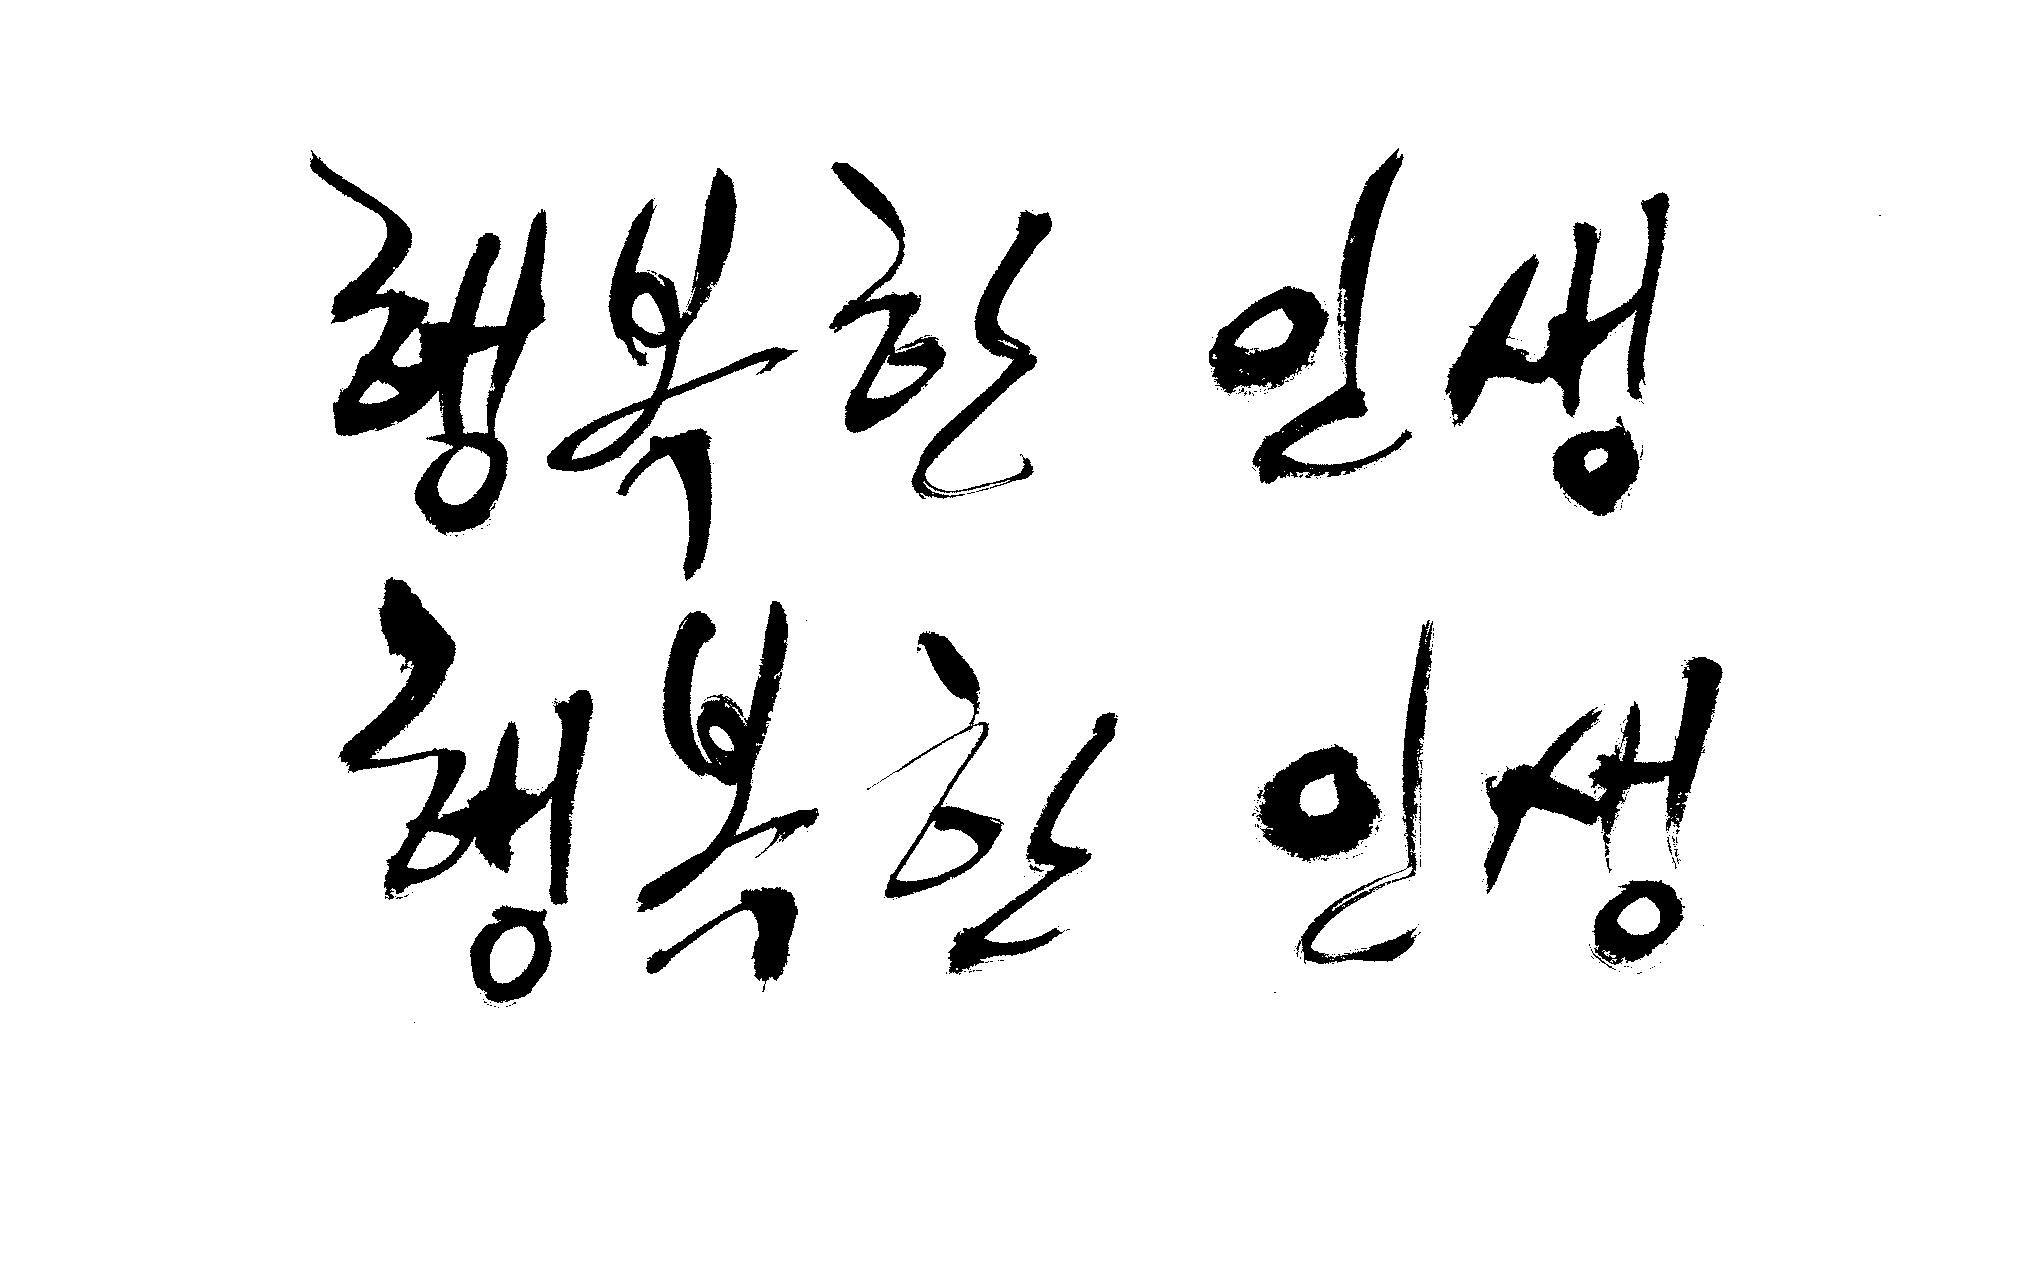 행복한 인생
행복한 인생